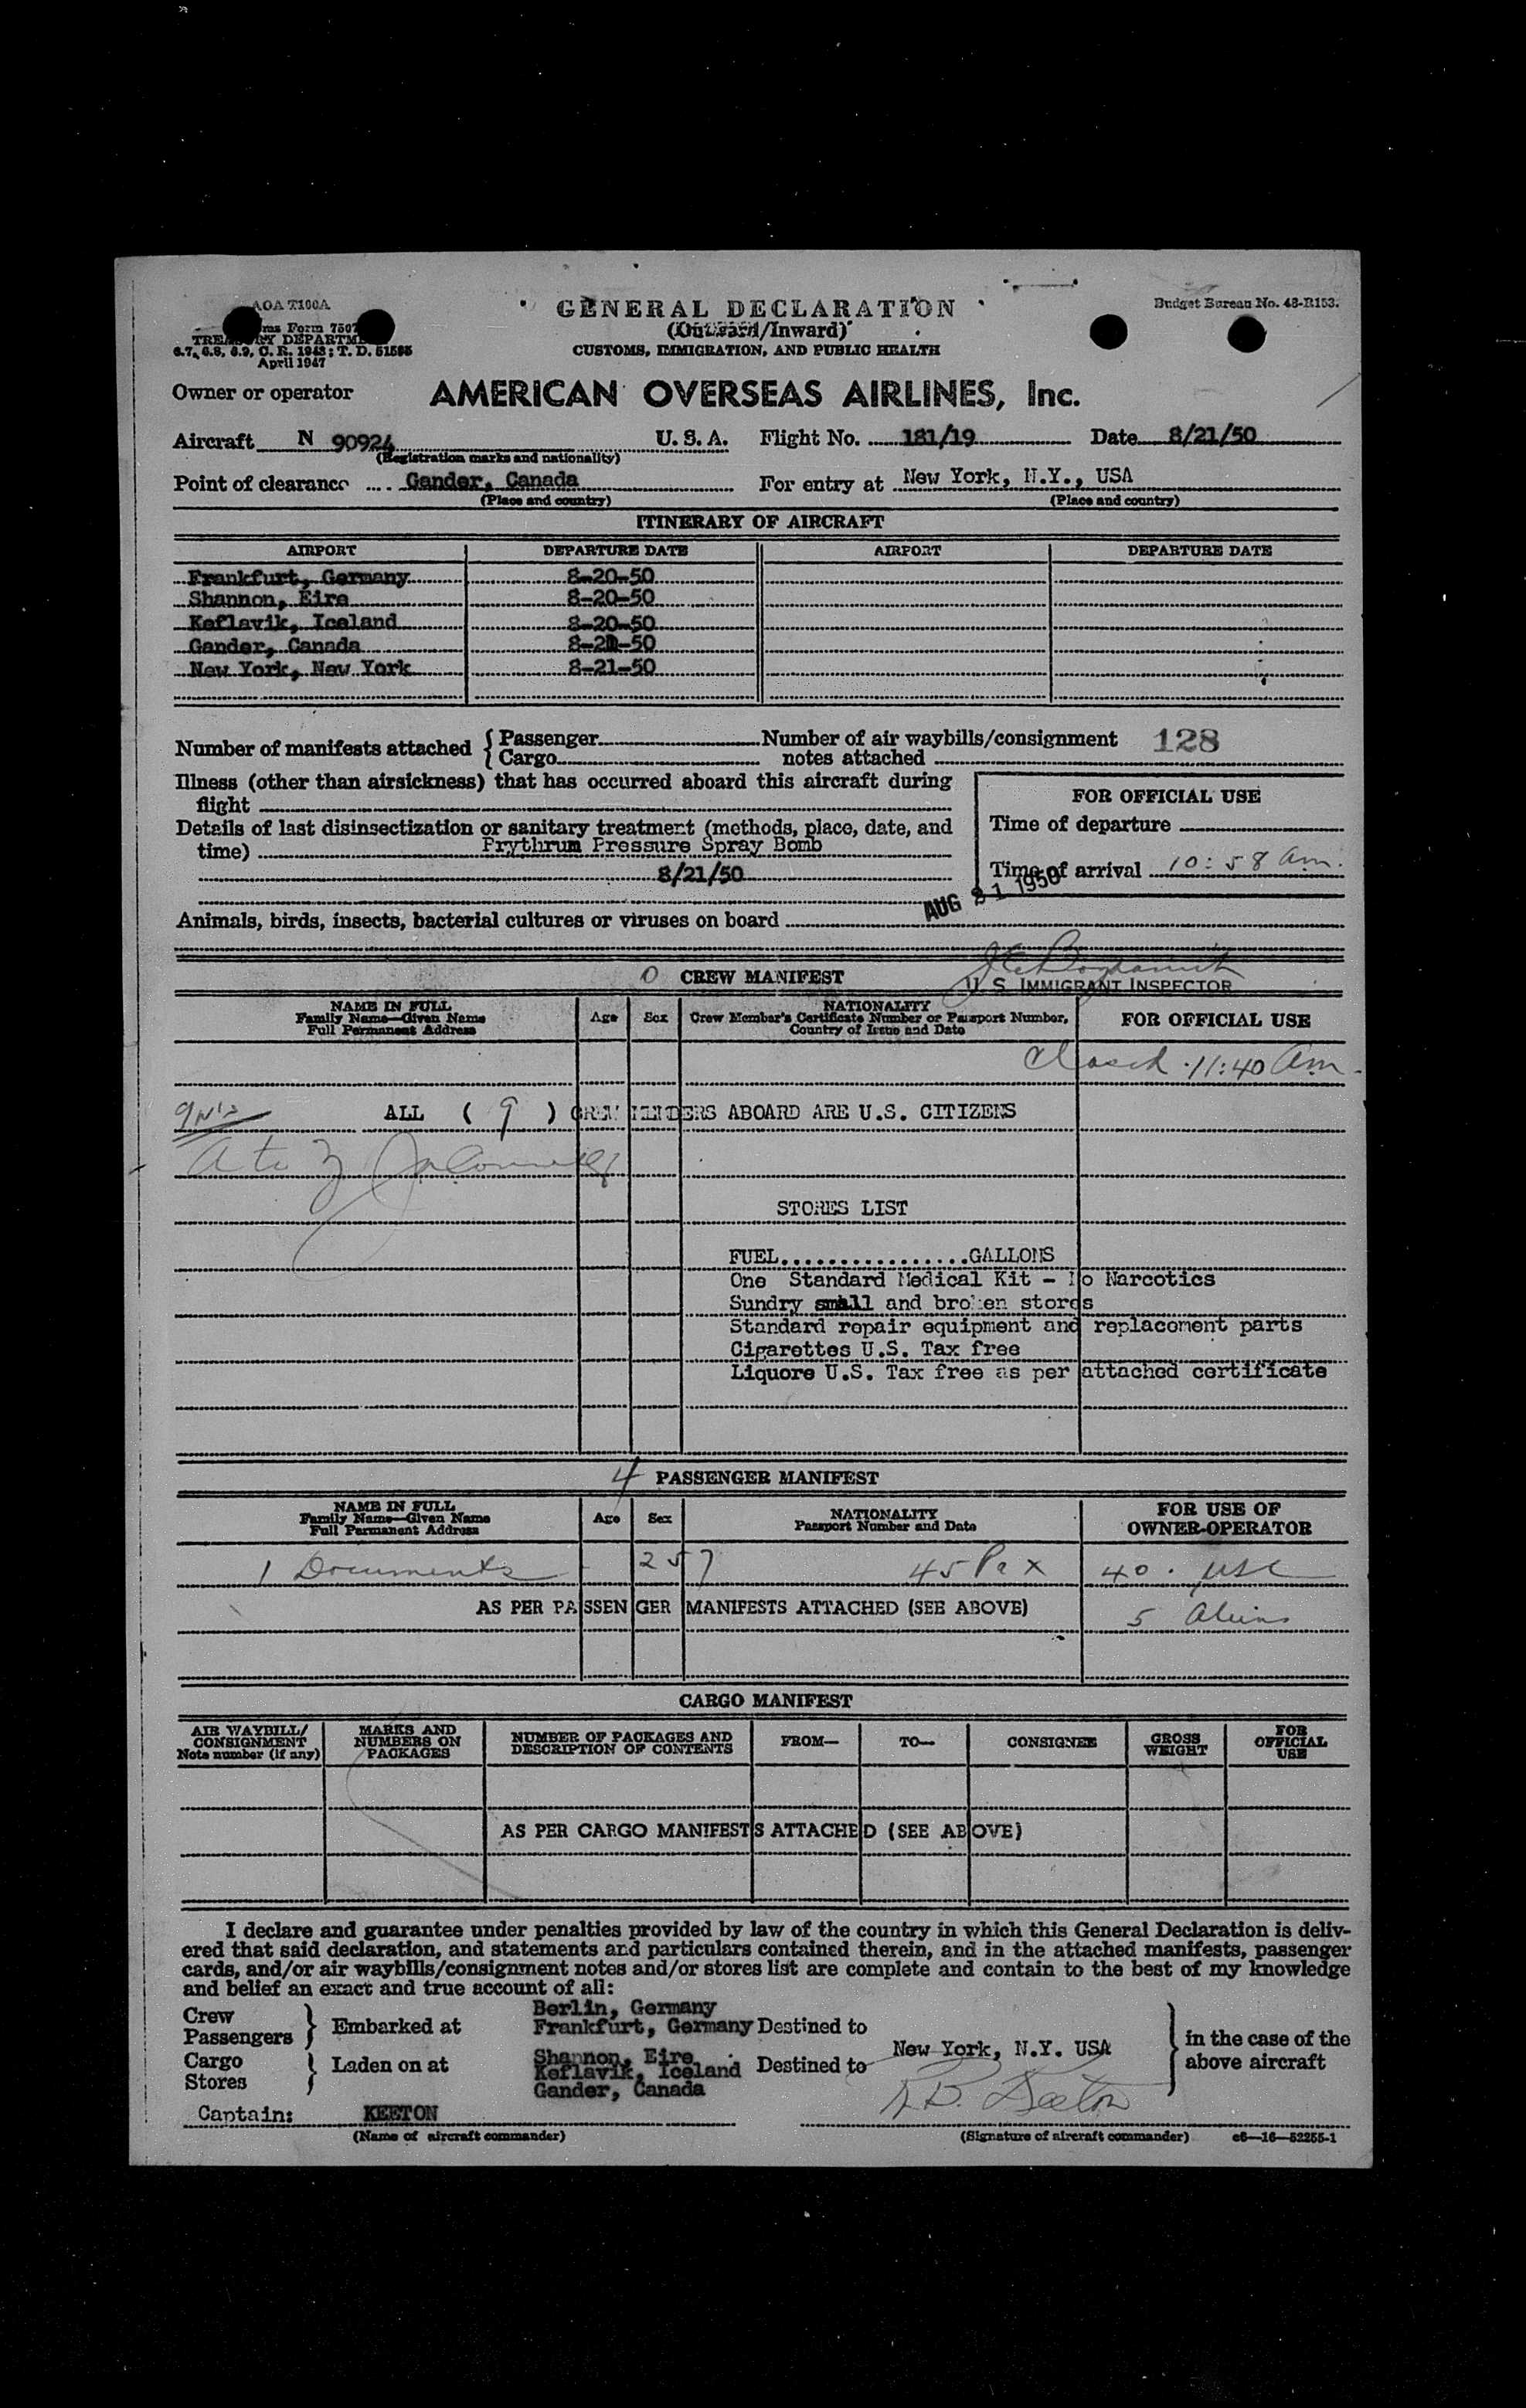 AOA T100A
GENERAL DECLARATION
Budget Bureau No. 48-R153.
Form 7507
(Outward/Inward)
TREASURY DEPARTMENT
6.7, 6.8, 6.9, C. R. 1943; T. D. 51595
CUSTOMS, IMMIGRATION, AND PUBLIC HEALTH
April 1947
Owner or operator AMERICAN OVERSEAS AIRLINES, Inc.
Aircraft N 90924 U. S. A. Flight No. 181/19 Date 8/21/50
(Registration marks and nationality)
Point of clearance Gander, Canada For entry at New York, N.Y., USA
(Place and country) (Place and country)
ITINERARY OF AIRCRAFT
AIRPORT DEPARTURE DATE AIRPORT DEPARTURE DATE
Frankfurt, Germany 8-20-50
Shannon, Eire 8-20-50
Keflavik, Iceland 8-20-50
Gander, Canada 8-21-50
New York, New York 8-21-50
Number of manifests attached { Passenger Number of air waybills/consignment 128
Cargo notes attached
Illness (other than airsickness) that has occurred aboard this aircraft during
flight
FOR OFFICIAL USE
Details of last disinsectization or sanitary treatment (methods, place, date, and
Time of departure
time) Prythrum Pressure Spray Bomb
8/21/50
Time of arrival 10:58 am.
AUG 21 1950
Animals, birds, insects, bacterial cultures or viruses on board
0 CREW MANIFEST
U. S. IMMIGRANT INSPECTOR
NAME IN FULL
Family Name—Given Name
Full Permanent Address
Age Sex
NATIONALITY
Crew Member's Certificate Number or Passport Number,
Country of Issue and Date
FOR OFFICIAL USE
Closed 11:40 am.
ALL ( 9 ) CREW MEMBERS ABOARD ARE U.S. CITIZENS
A to Z
STORES LIST
FUEL................GALLONS
One Standard Medical Kit - No Narcotics
Sundry small and broken stores
Standard repair equipment and replacement parts
Cigarettes U.S. Tax free
Liquore U.S. Tax free as per attached certificate
4 PASSENGER MANIFEST
NAME IN FULL
Family Name—Given Name
Full Permanent Address
Age Sex
NATIONALITY
Passport Number and Date
FOR USE OF
OWNER-OPERATOR
1 Documents - 257 45 Pax 40 . USC
AS PER PASSENGER MANIFESTS ATTACHED (SEE ABOVE) 5 Aliens
CARGO MANIFEST
AIR WAYBILL/
CONSIGNMENT
Note number (if any)
MARKS AND
NUMBERS ON
PACKAGES
NUMBER OF PACKAGES AND
DESCRIPTION OF CONTENTS
FROM— TO— CONSIGNEE
GROSS
WEIGHT
FOR
OFFICIAL
USE
AS PER CARGO MANIFESTS ATTACHED (SEE ABOVE)
I declare and guarantee under penalties provided by law of the country in which this General Declaration is deliv-
ered that said declaration, and statements and particulars contained therein, and in the attached manifests, passenger
cards, and/or air waybills/consignment notes and/or stores list are complete and contain to the best of my knowledge
and belief an exact and true account of all:
Berlin, Germany
Crew
Passengers } Embarked at Frankfurt, Germany Destined to
New York, N.Y. USA
in the case of the
above aircraft
Cargo
Stores } Laden on at Shannon, Eire
Keflavik, Iceland Destined to
Gander, Canada
Captain: KEETON
(Name of aircraft commander) (Signature of aircraft commander) c6—16—52255-1